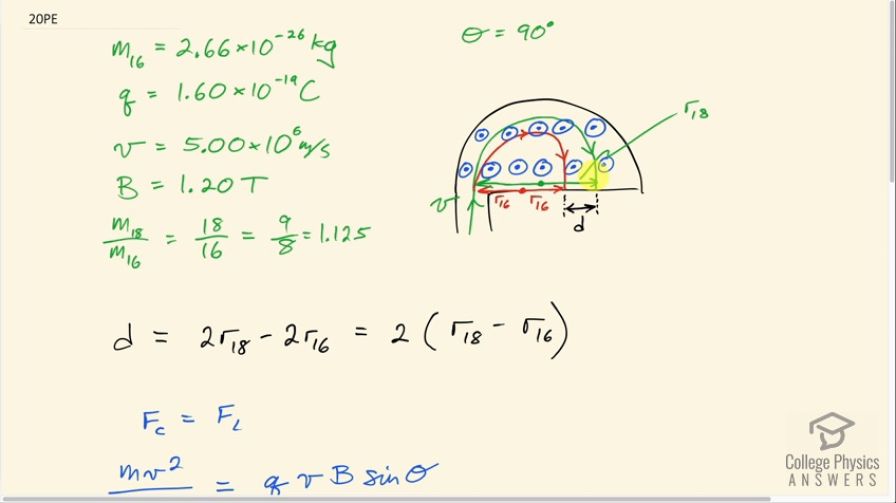 20PE
m₁₆ = 2.66×10⁻²⁶ kg
θ = 90°
q = 1.60×10⁻¹⁹ C
v = 5.00×10⁶ m/s
B = 1.20 T
m₁₈/m₁₆ = 18/16 = 9/8 = 1.125
r₁₈
v
r₁₆ r₁₆
d
d = 2r₁₈ - 2r₁₆ = 2(r₁₈ - r₁₆)
F_c = F_L
mv² = q v B sinθ
College Physics
ANSWERS